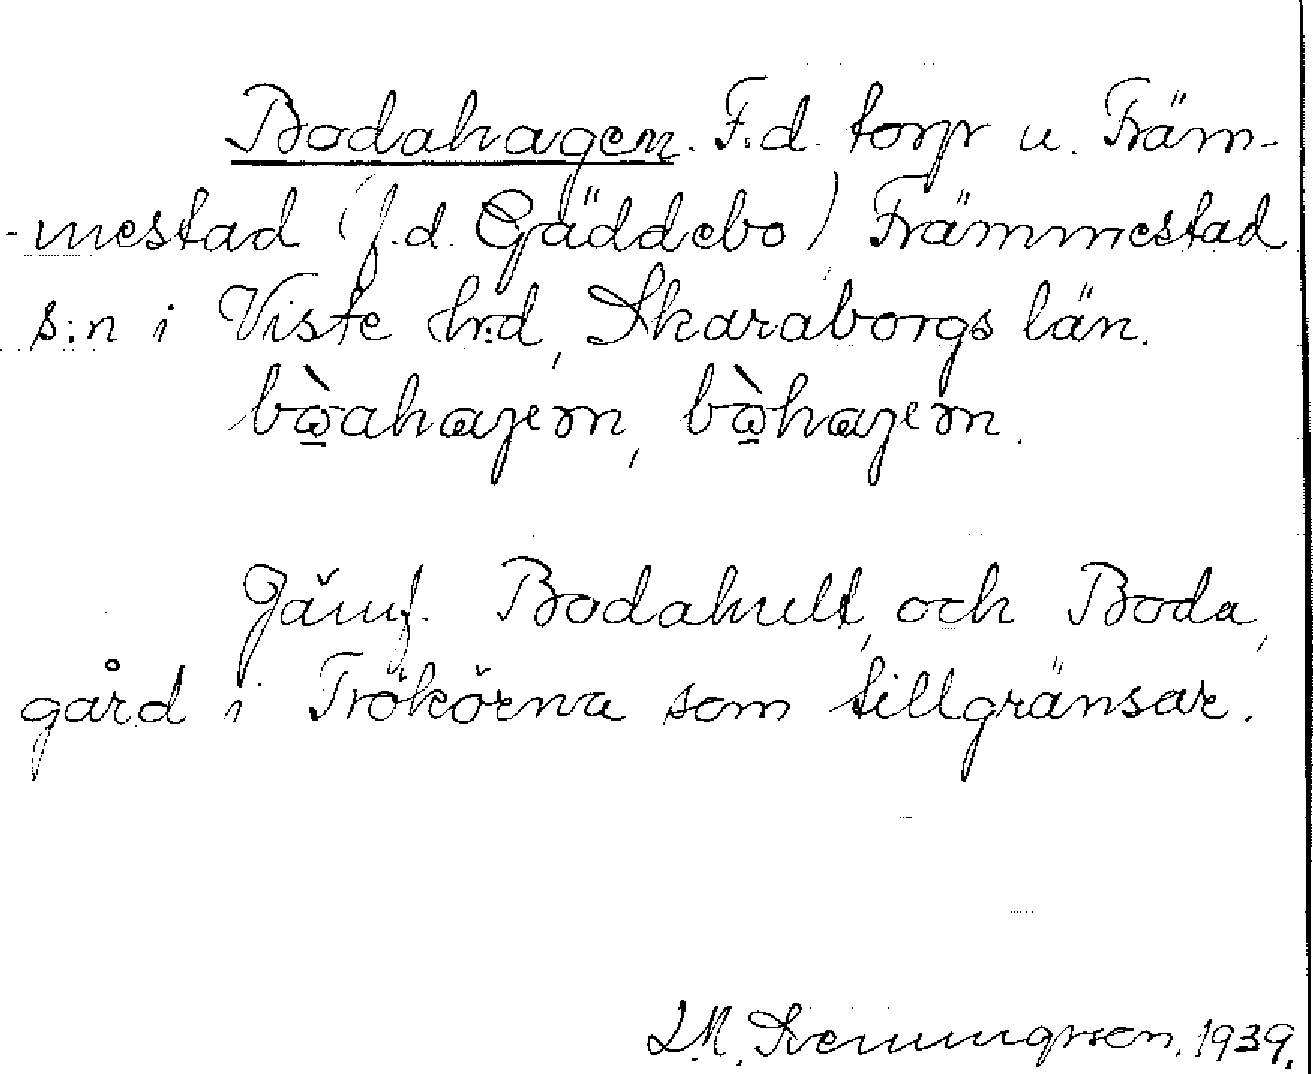 Bodahagen. F.d. torp u. Främ-
-mestad (f.d. Gäddebo) Främmestad
s:n i Viste hrd, Skaraborgs län.
bòahagen, bòhagen.
Jämf. Bodahult, och Boda,
gård i Trökörna som tillgränsar.
1939.